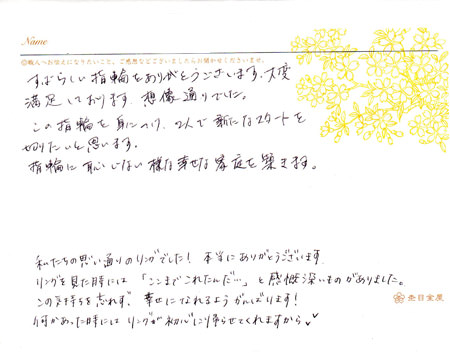 Name
◎職人へお伝えになりたいこと、ご感想などございましたらお聞かせくださいませ。
すばらしい指輪をありがとうございます。大変
満足しております。想像通りでした。
この指輪を身につけ、2人で新たなスタートを
切りたいと思います。
指輪に恥じない様な幸せな家庭を築きます。
私たちの思い通りのリングでした！ 本当にありがとうございます
リングを見た時には「ここまでこれたんだ…」と感慨深いものがありました。
この気持ちを忘れず、幸せになれるようがんばります！
何かあった時には リングが初心に帰らせてくれますから
杢目金屋